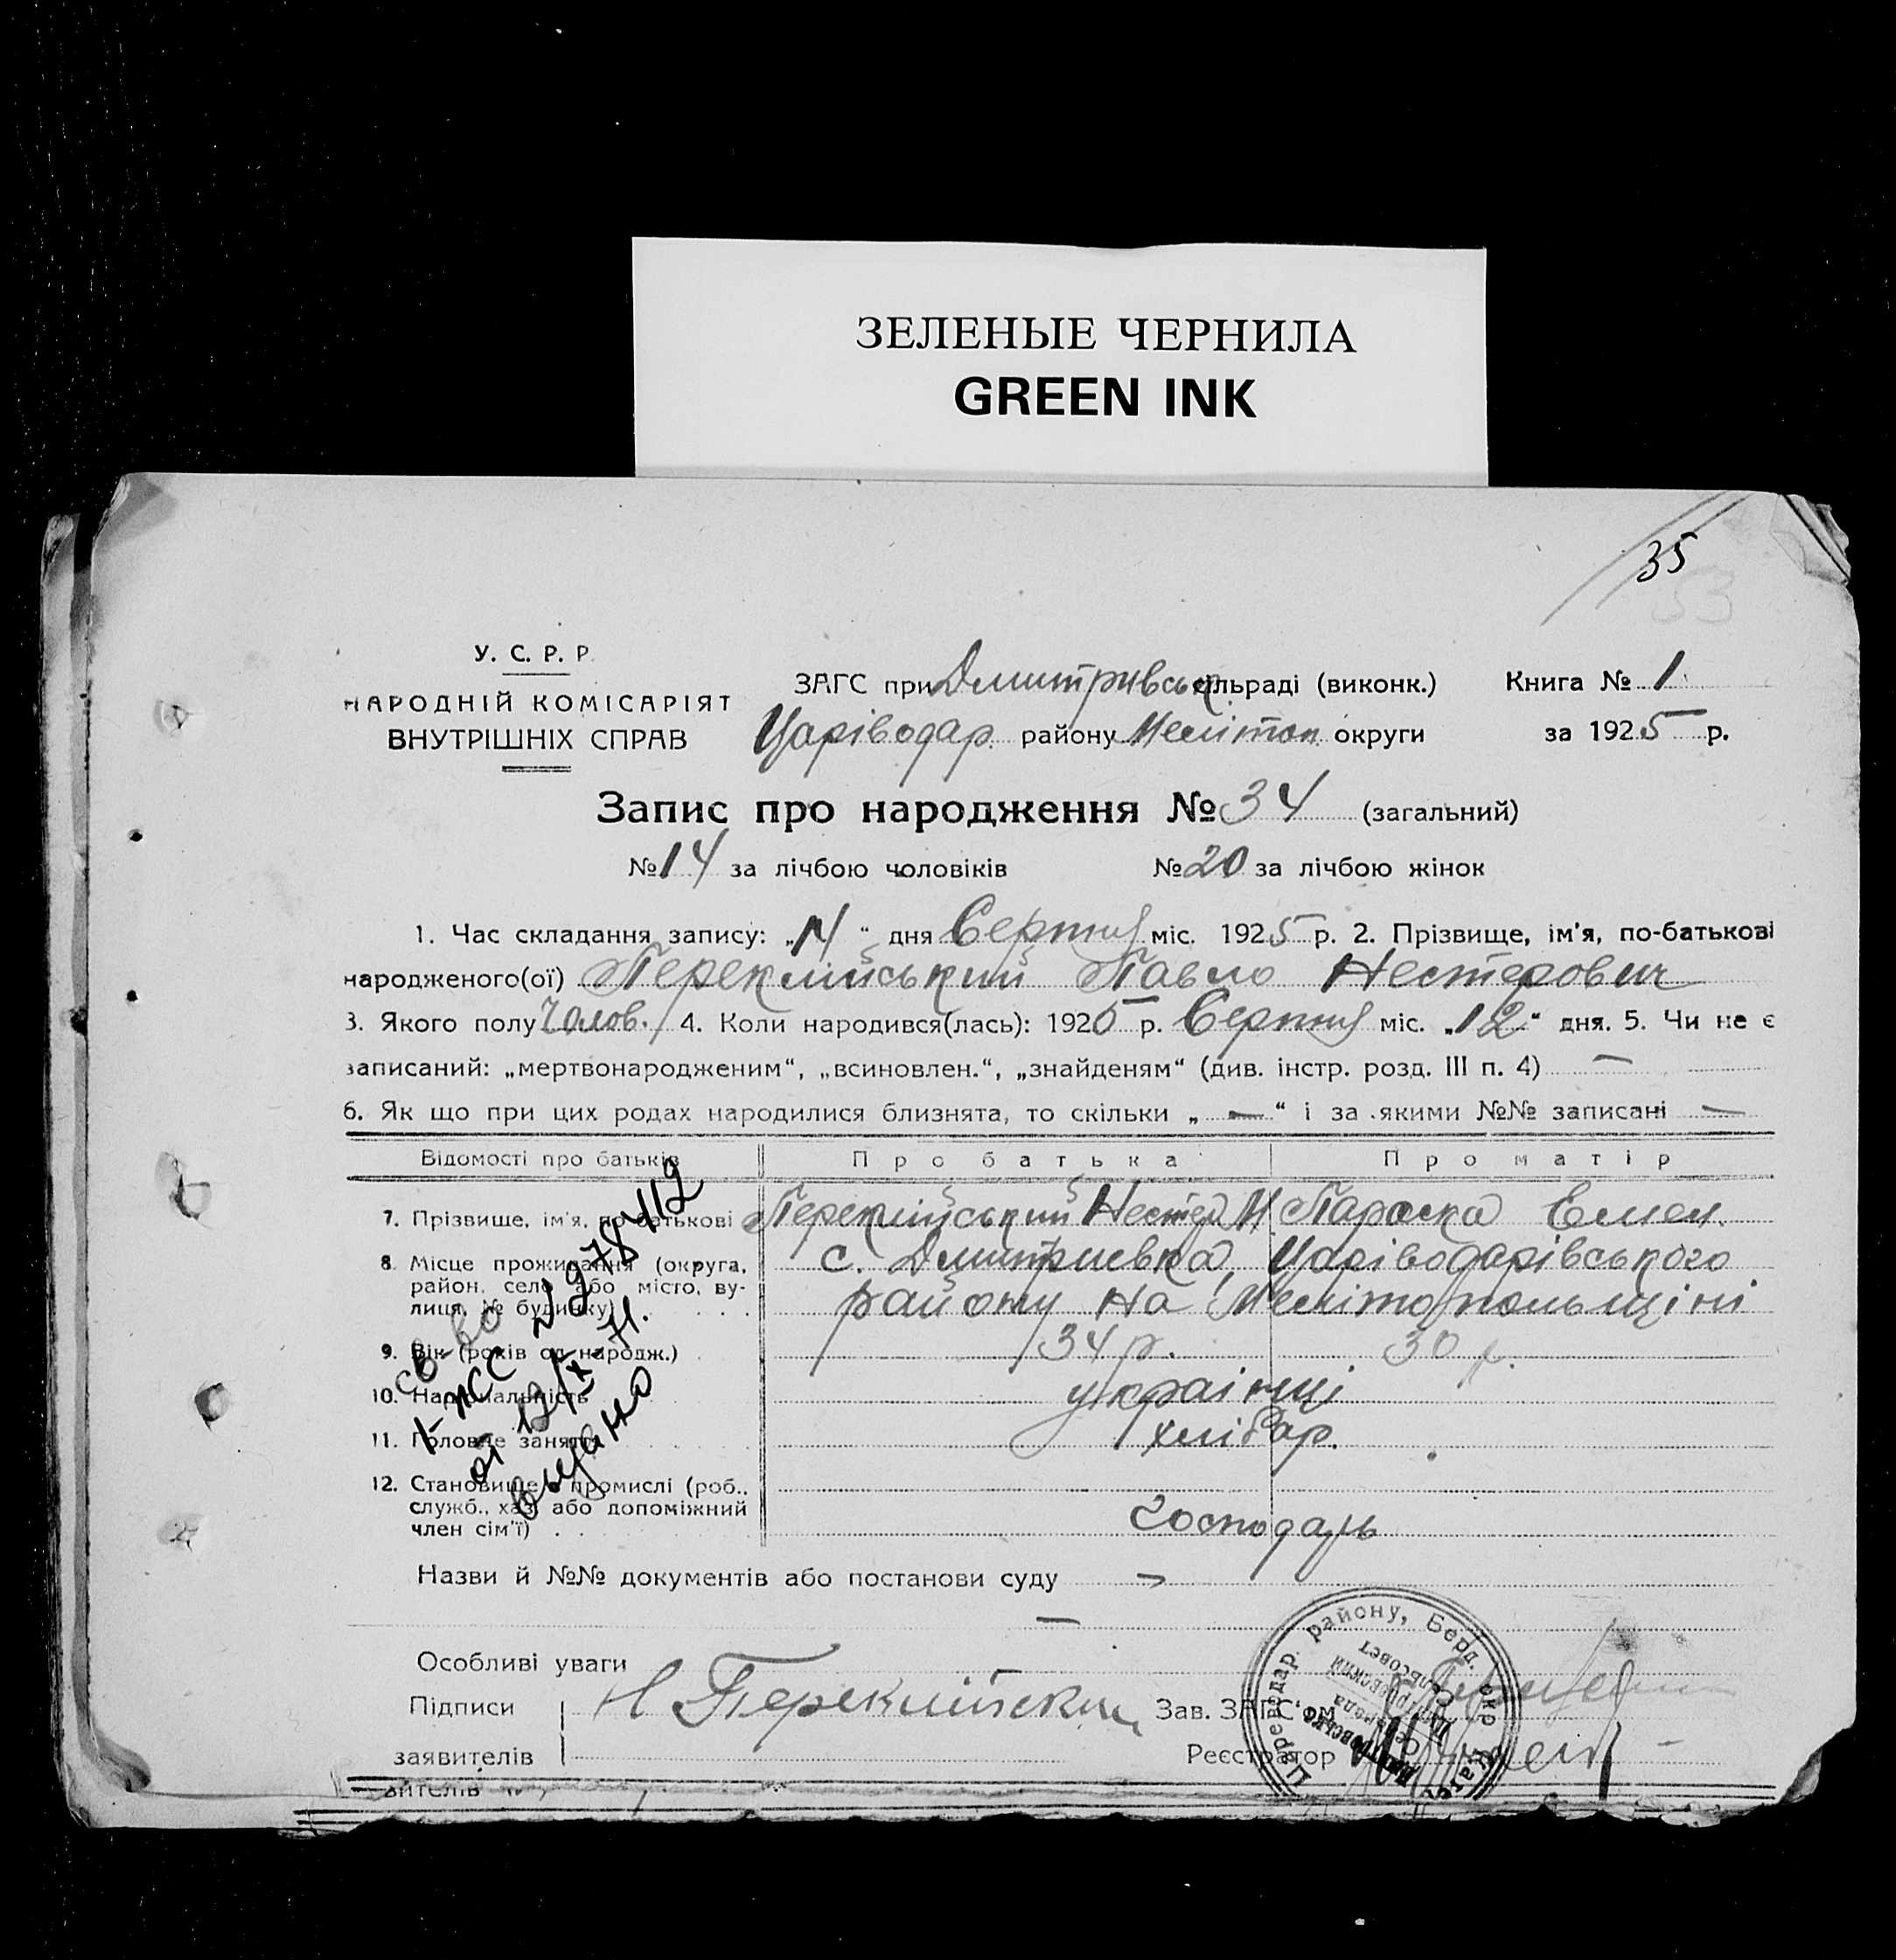 ЗЕЛЕНЫЕ ЧЕРНИЛА
GREEN INK
35
У. С. Р. Р.
НАРОДНІЙ КОМІСАРІЯТ
ВНУТРІШНІХ СПРАВ
ЗАГС при Дмитрівськ сільраді (виконк.) Книга № 1
Царіводар. району Меліт оп. округи за 1925 р.
Запис про народження № 34 (загальний)
№ 14 за лічбою чоловіків № 20 за лічбою жінок
1. Час складання запису: „14“ дня Серпня міс. 1925 р. 2. Прізвище, ім'я, по-батькові
народженого(ої) Переклійський Павло Нестерович
3. Якого полу Чолов. 4. Коли народився(лась): 1925 р. Серпня міс. „12“ дня. 5. Чи не є
записаний: „мертвонародженим“, „всиновлен.“, „знайденям“ (див. інстр. розд. III п. 4) —
6. Як що при цих родах народилися близнята, то скільки „ — “ і за якими №№ записані —
Відомості про батьків Про батька Про матір
7. Прізвище, ім'я, по-батькові Переклійський Нестер М. Параска Емел.
8. Місце проживання (округа, с. Дмитриевка, Царіводарівського
район, село або місто, ву-
лиця, № будинку) району на Мелітопольщіні
9. Вік (років од народж.) 34 р. 30 р.
10. Національність українці
11. Головне заняття хлібар.
12. Становище в промислі (роб.,
служб., хаз. або допоміжний
член сім'ї) господарь
св-во
1-ЖС № 978412
от 12/IX-71.
выдано
Назви й №№ документів або постанови суду —
—
Особливі уваги
Підписи Н Переклійский Зав. ЗАГС'ом
заявителів Реєстратор
Цареводар. району, Берд. окр.